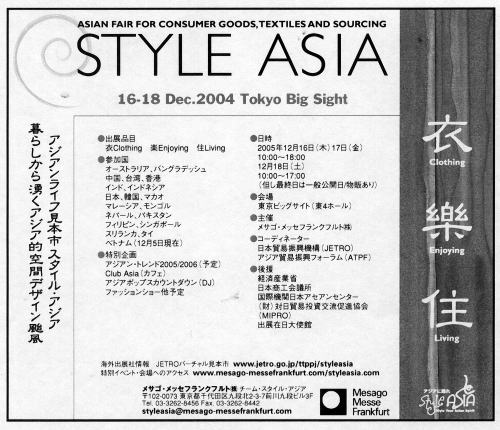 ASIAN FAIR FOR CONSUMER GOODS,TEXTILES AND SOURCING
STYLE ASIA
16-18 Dec.2004 Tokyo Big Sight
アジアンライフ見本市スタイル・アジア
暮らしから湧くアジア的空間デザイン颱風
●出展品目
衣Clothing 楽Enjoying 住Living
●参加国
オーストラリア、バングラデッシュ
中国、台湾、香港
インド、インドネシア
日本、韓国、マカオ
マレーシア、モンゴル
ネパール、パキスタン
フィリピン、シンガポール
スリランカ、タイ
ベトナム(12月5日現在)
●特別企画
アジアン・トレンド2005/2006(予定)
Club Asia(カフェ)
アジアポップスカウントダウン(DJ)
ファッションショー他予定
●日時
2005年12月16日(木)17日(金)
10:00~18:00
12月18日(土)
10:00~17:00
(但し最終日は一般公開日/物販あり)
●会場
東京ビッグサイト(東4ホール)
●主催
メサゴ・メッセフランクフルト㈱
●コーディネーター
日本貿易振興機構(JETRO)
アジア貿易振興フォーラム(ATPF)
●後援
経済産業省
日本商工会議所
国際機関日本アセアンセンター
(財)対日貿易投資交流促進協会
(MIPRO)
出展在日大使館
衣
Clothing
樂
Enjoying
住
Living
海外出展社情報 JETROバーチャル見本市 www.jetro.go.jp/ttppj/styleasia
特別イベント・会場へのアクセス www.mesago-messefrankfurt.com/styleasia.com
メサゴ・メッセフランクフルト㈱ チーム・スタイル・アジア
〒102-0073 東京都千代田区九段北2-3-7前川九段ビル3F
Tel. 03-3262-8456 Fax. 03-3262-8442
styleasia@mesago-messefrankfurt.com
Mesago
Messe
Frankfurt
Style ASIA